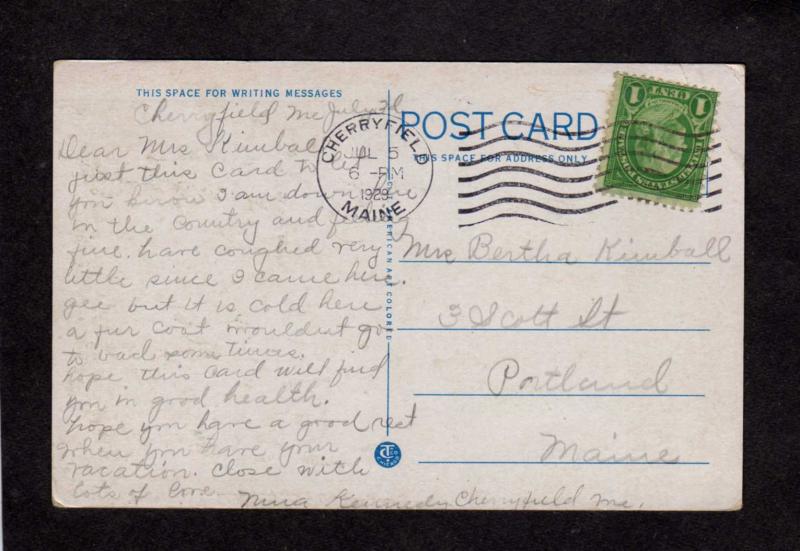 THIS SPACE FOR WRITING MESSAGES
Cherryfield Me July 3d
Dear Mrs Kimball
just this Card to let
you know I am down here
in the Country and feeling
fine. have coughed very
little since I came here.
gee but it is cold here
a fur Coat wouldnt go
to bad some times.
hope this Card will find
you in good health.
hope you have a good rest
when you have your
vacation. Close with
lots of Love
Nina Kennedy Cherryfield Me.
CHERRYFIELD
JUL 5
6 PM
1929
MAINE
POST CARD
THIS SPACE FOR ADDRESS ONLY
1 CENT 1
Mrs Bertha Kimball
3 Scott St
Portland
Maine
AMERICAN ART COLORED